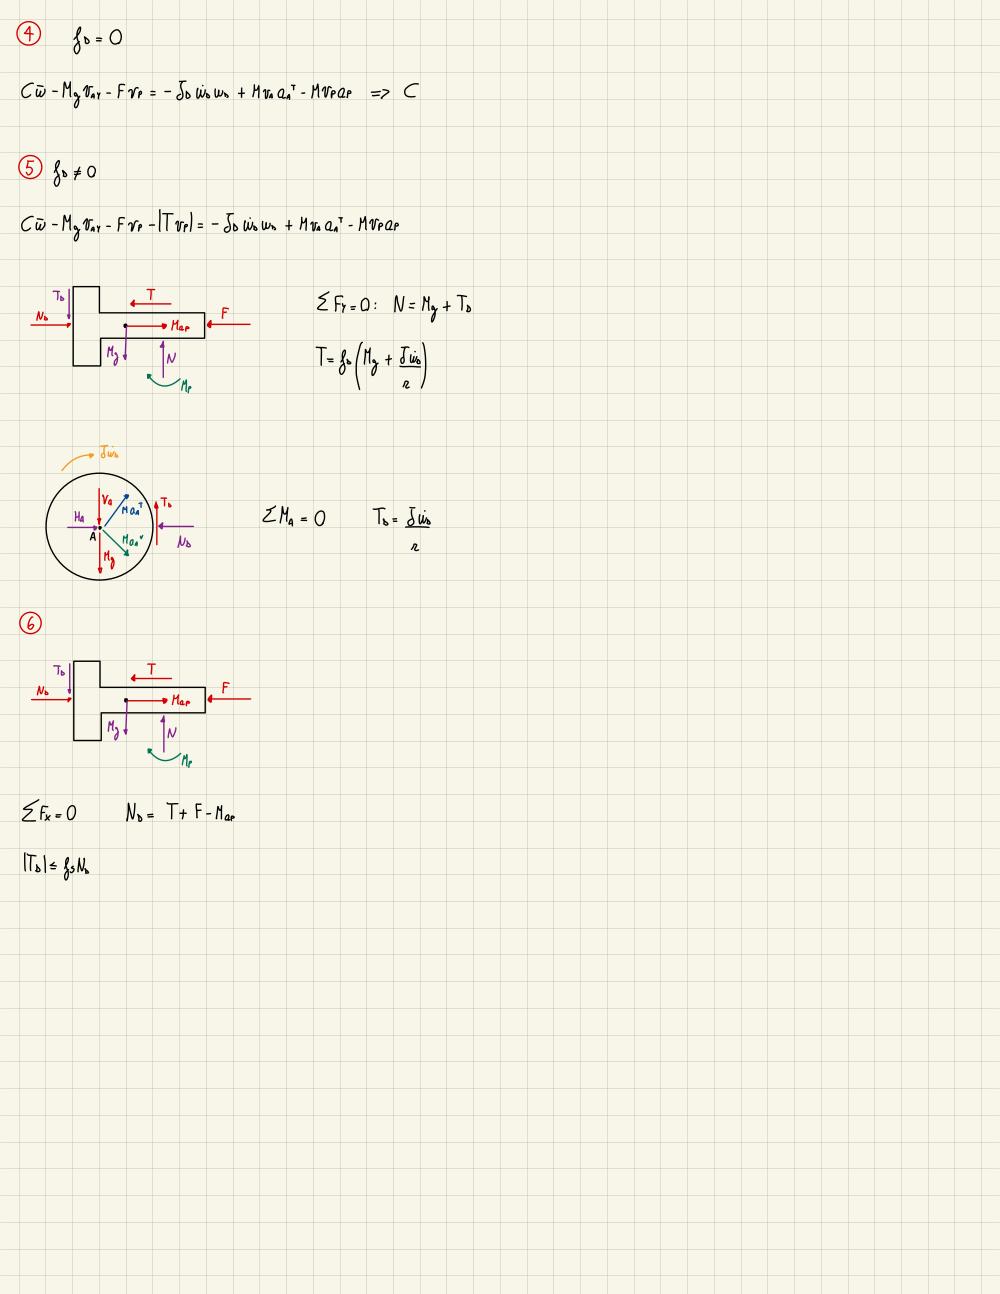 4 f_D = 0
Cω̄ - Mg v_AY - F v_P = - J_D ω̇_D ω_D + M v_A a_A^T - M v_P a_P => C
5 f_D ≠ 0
Cω̄ - Mg v_AY - F v_P - |T v_P| = - J_D ω̇_D ω_D + M v_A a_A^T - M v_P a_P
T_D T
N_D Ma_P F
Mg N
M_P
Σ F_Y = 0 : N = Mg + T_D
T = f_D (Mg + Jω̇_D / r)
Jω̇_D
V_A Ma_A^T T_D
H_A A Ma_A^N N_D
Mg
Σ M_A = 0 T_D = Jω̇_D / r
6
T_D T
N_D Ma_P F
Mg N
M_P
Σ F_X = 0 N_D = T + F - Ma_P
|T_D| ≤ f_S N_D